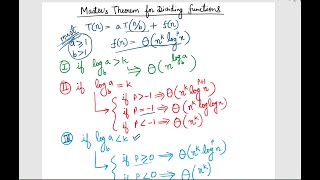 Master's Theorem for Dividing Functions
must T(n) = a T(n/b) + f(n)
a ≥ 1
b > 1
f(n) = Θ(n^k log^p n)
I if log_b a > k ⇒ Θ(n^(log_b a))
II if log_b a = k
if P > -1 ⇒ Θ(n^k log^(p+1) n)
if P = -1 ⇒ Θ(n^k log log n)
if P < -1 ⇒ Θ(n^k)
III if log_b a < k
if P ≥ 0 ⇒ Θ(n^k log^p n)
if P < 0 ⇒ Θ(n^k)